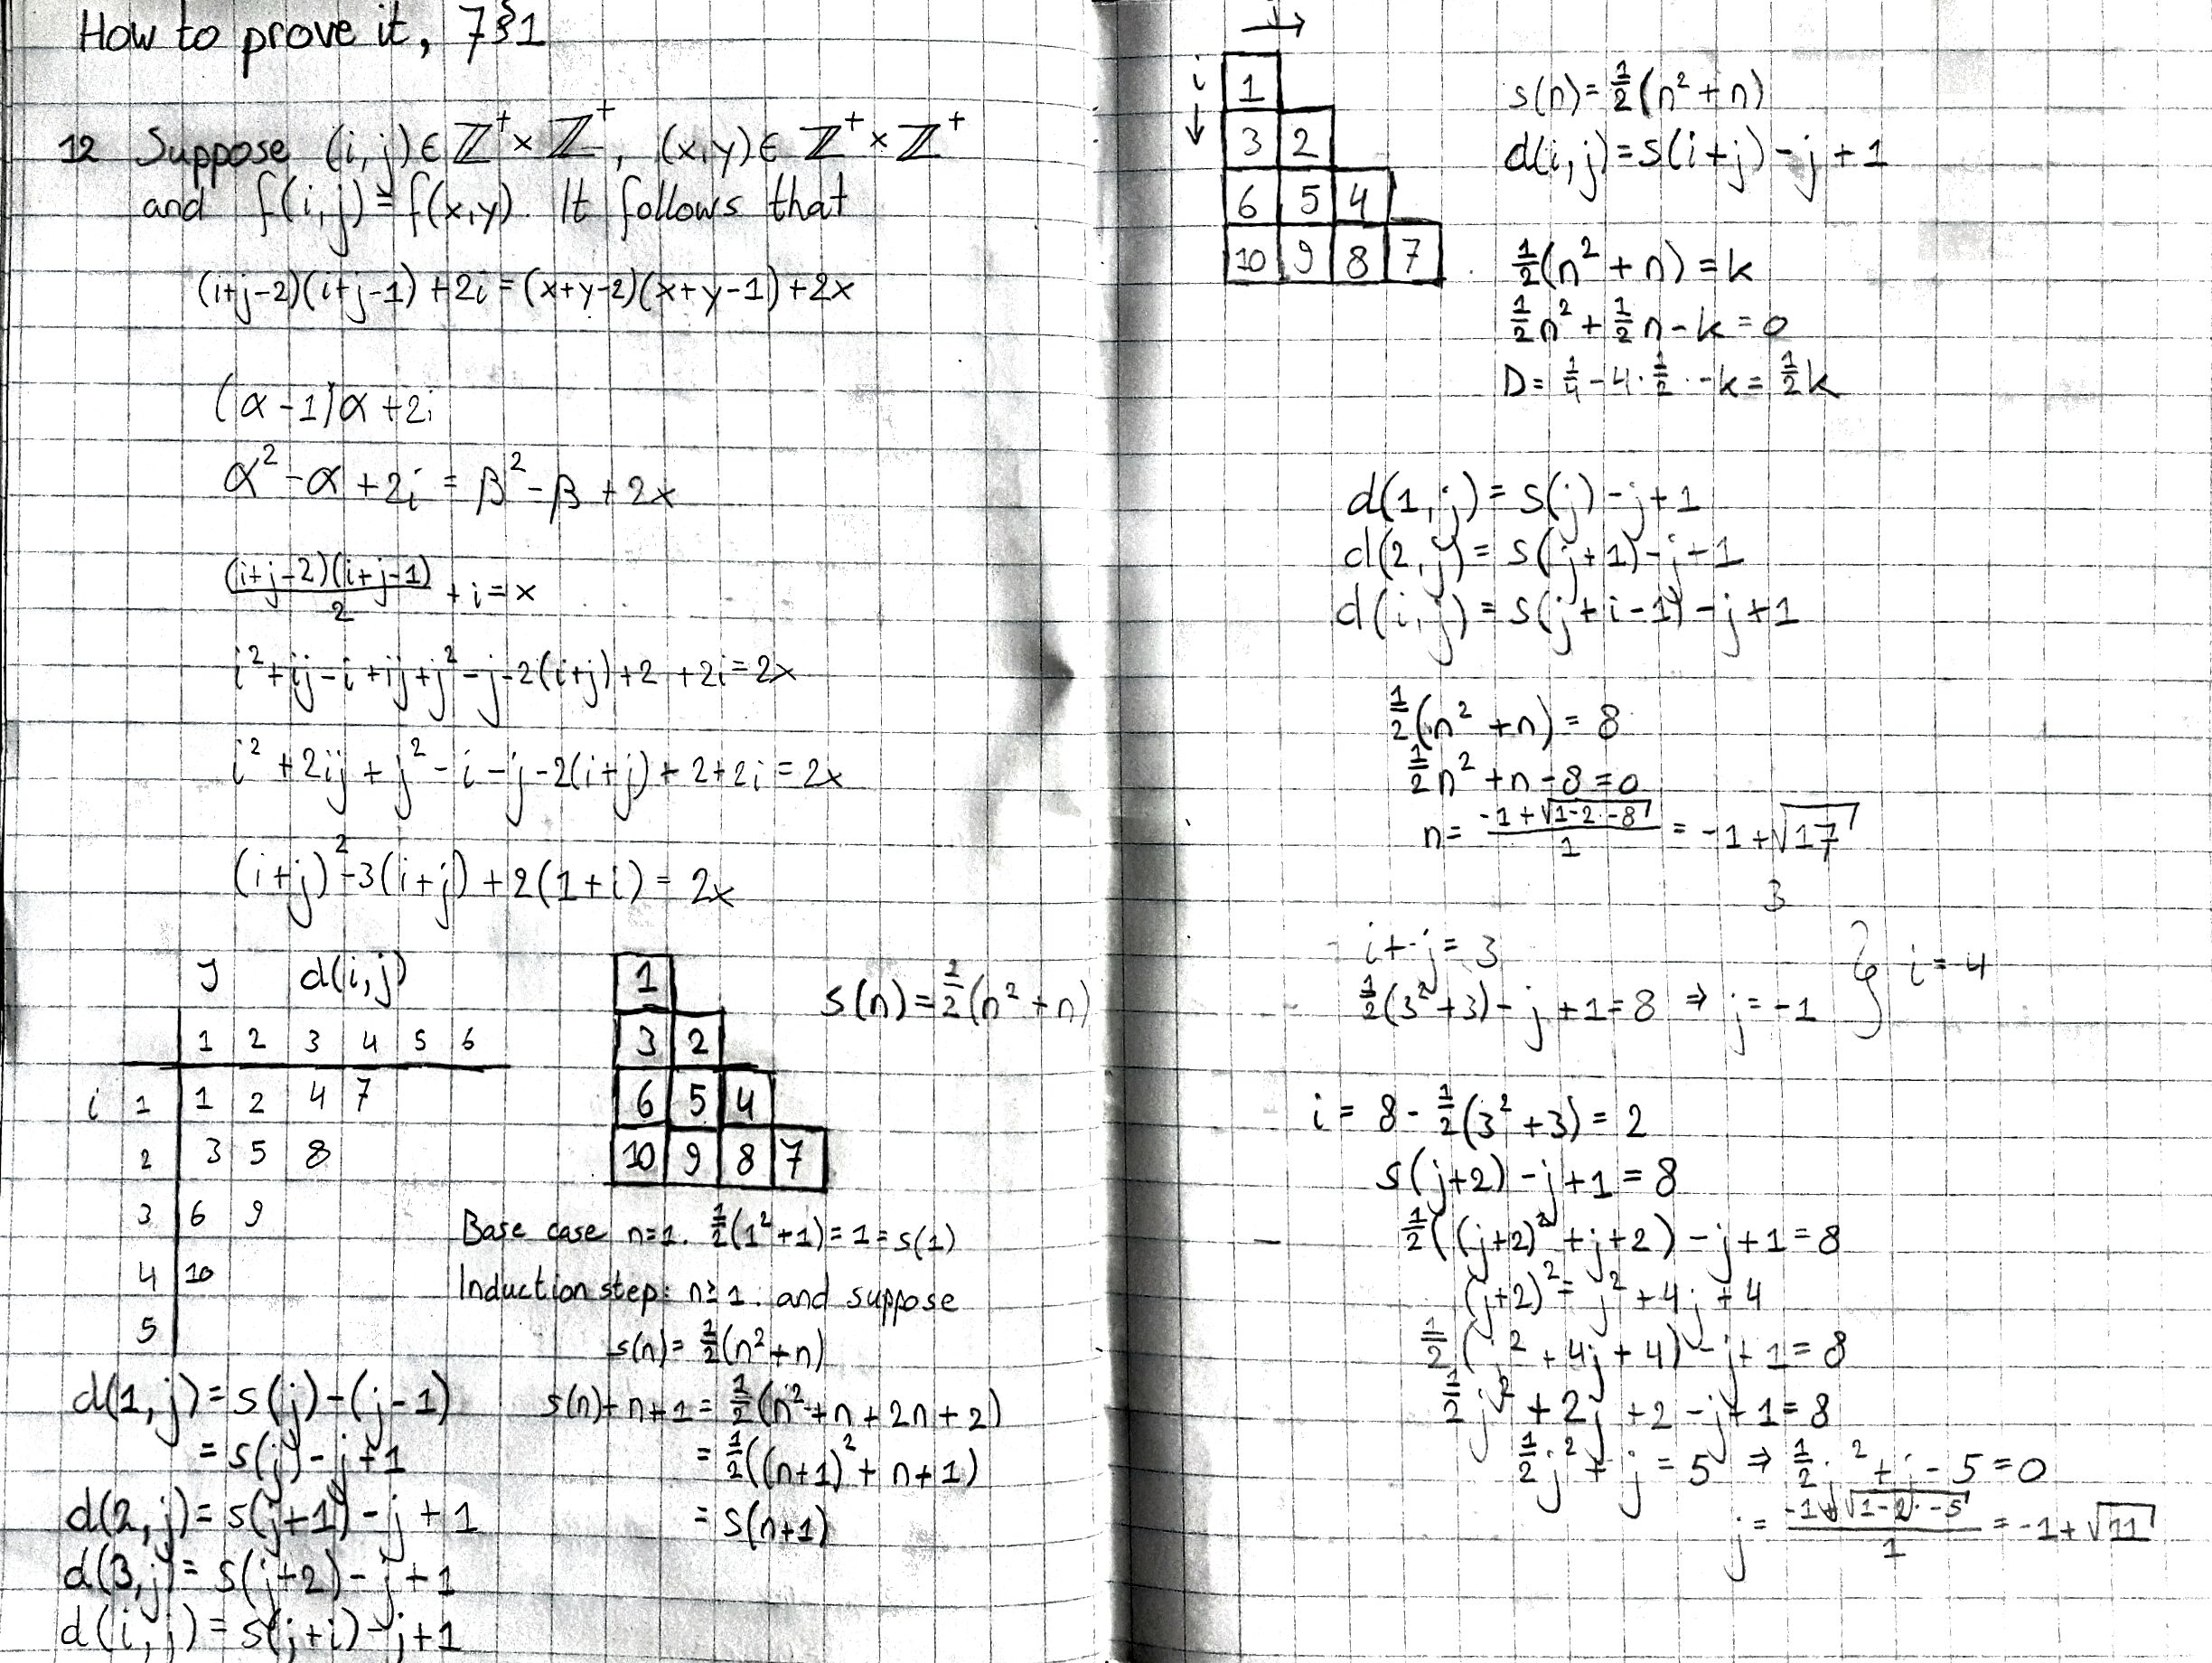 How to prove it, 7§1
12 Suppose (i,j)∈ℤ⁺×ℤ⁺, (x,y)∈ℤ⁺×ℤ⁺
and f(i,j)=f(x,y). It follows that
(i+j-2)(i+j-1)+2i=(x+y-2)(x+y-1)+2x
(α-1)α+2i
α²-α+2i=β²-β+2x
(i+j-2)(i+j-1)/2 + i=x
i²+ij-i+ij+j²-j-2(i+j)+2+2i=2x
i²+2ij+j²-i-j-2(i+j)+2+2i=2x
(i+j)²-3(i+j)+2(1+i)=2x
J d(i,j)
1 2 3 4 5 6
i 1 1 2 4 7
2 3 5 8
3 6 9
4 10
5
1
3 2
6 5 4
10 9 8 7
s(n)=½(n²+n)
Base case n=1. ½(1²+1)=1=s(1)
Induction step: n≥1. and suppose
s(n)=½(n²+n)
s(n)+n+1=½(n²+n+2n+2)
=½((n+1)²+n+1)
=s(n+1)
d(1,j)=s(j)-(j-1)
=s(j)-j+1
d(2,j)=s(j+1)-j+1
d(3,j)=s(j+2)-j+1
d(i,j)=s(j+i)-j+1
j
→
i
↓
1
3 2
6 5 4
10 9 8 7
s(n)=½(n²+n)
d(i,j)=s(i+j)-j+1
½(n²+n)=k
½n²+½n-k=0
D=¼-4·½·-k=½k
d(1,j)=s(j)-j+1
d(2,j)=s(j+1)-j+1
d(i,j)=s(j+i-1)-j+1
½(n²+n)=8
½n²+n-8=0
n=(-1+√(1-2·-8))/1=-1+√17
3
i+j=3
½(3²+3)-j+1=8 ⇒ j=-1 } i=4
i=8-½(3²+3)=2
s(j+2)-j+1=8
½((j+2)²+j+2)-j+1=8
(j+2)²=j²+4j+4
½(j²+4j+4)-j+1=8
½j²+2j+2-j+1=8
½j²+j=5 ⇒ ½j²+j-5=0
j=(-1+√(1-2·-5))/1=-1+√11